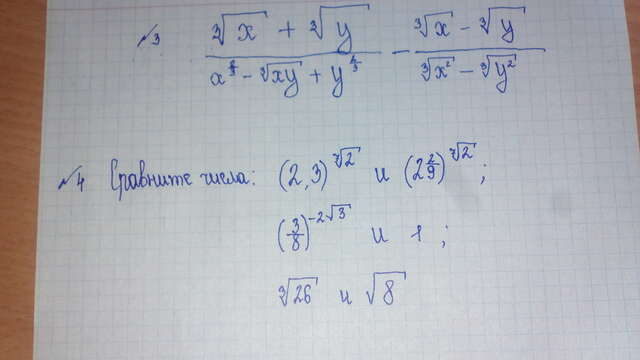 №3 (∛x + ∛y)/(x^(2/3) − ∛xy + y^(2/3)) − (∛x − ∛y)/(∛x² − ∛y²)
№4 Сравните числа: (2,3)^√2 и (2 2/9)^√2 ;
(3/8)^(−2√3) и 1 ;
∛26 и √8